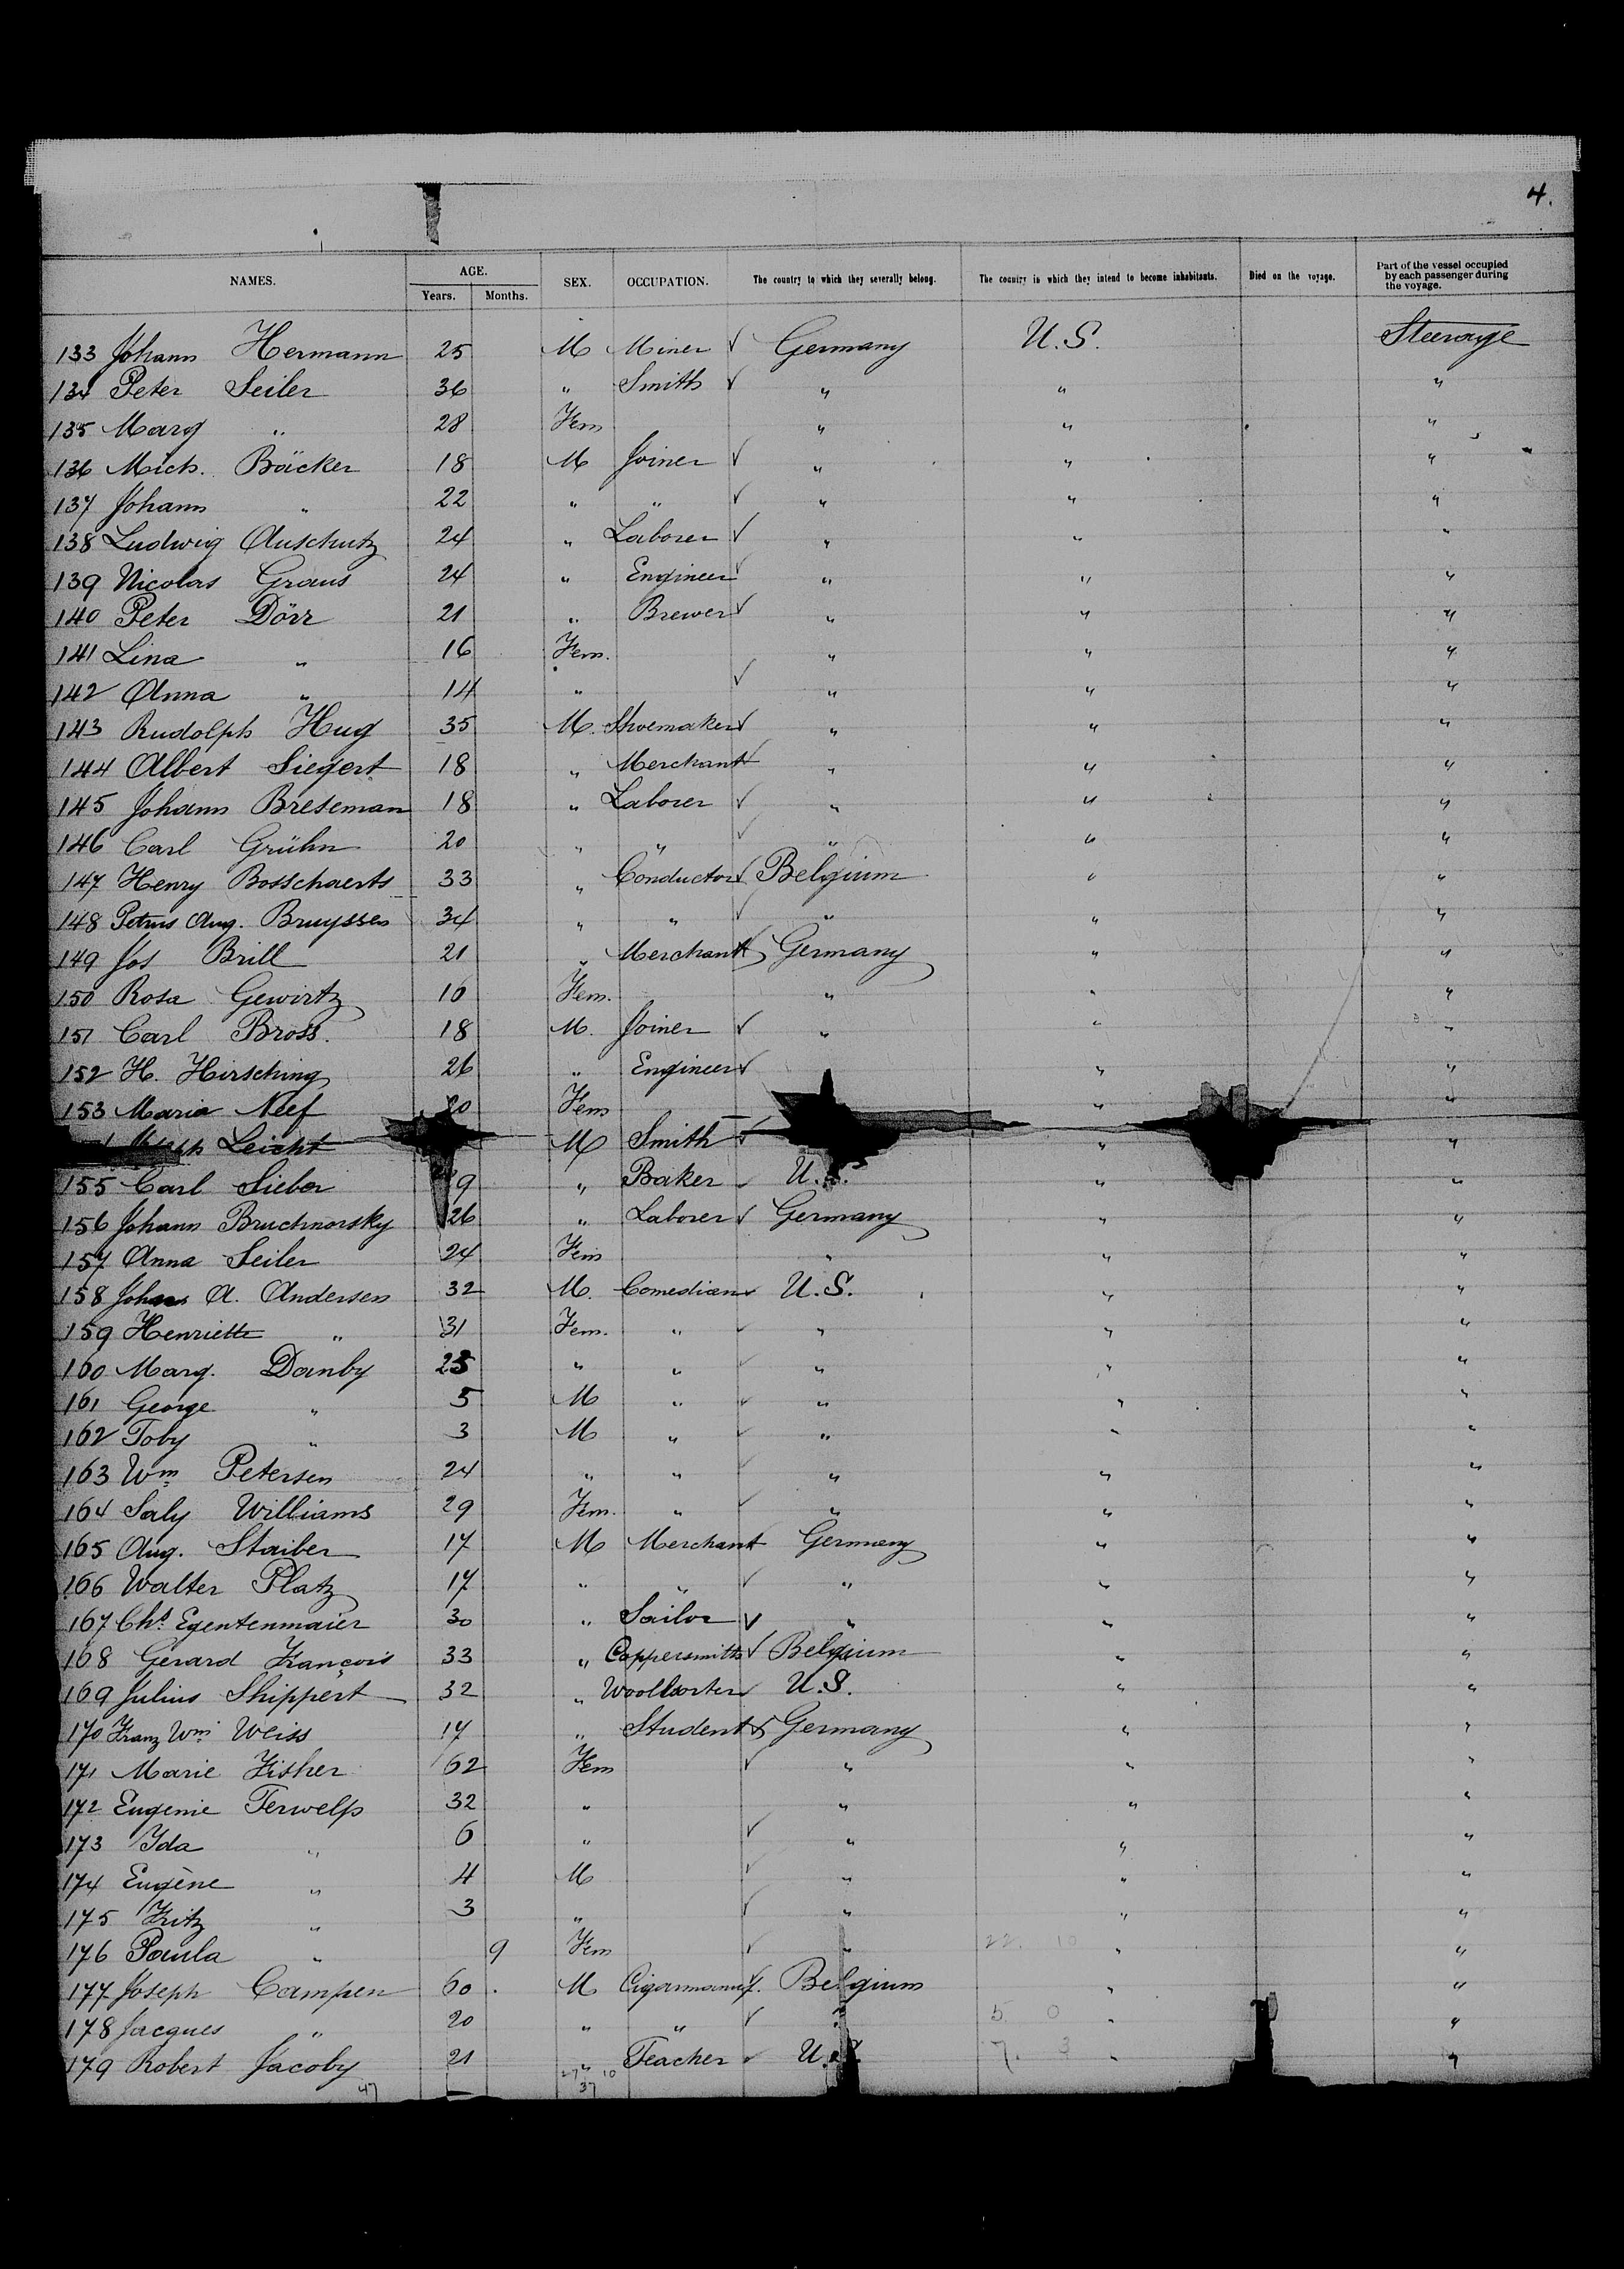 4.
NAMES. AGE. Years. Months. SEX. OCCUPATION. The country to which they severally belong. The country in which they intend to become inhabitants. Died on the voyage. Part of the vessel occupied by each passenger during the voyage.
133 Johann Hermann 25 M Miner √ Germany U.S. Steerage
134 Peter Seiler 36 " Smith √ " " "
135 Marg " 28 Fem " " "
136 Mich. Bäcker 18 M Joiner √ " " "
137 Johann " 22 " " √ " " "
138 Ludwig Auschutz 24 " Laborer √ " " "
139 Nicolas Graus 24 " Engineer √ " " "
140 Peter Dörr 21 " Brewer √ " " "
141 Lina " 16 Fem. " " "
142 Anna " 14 " √ " " "
143 Rudolph Hug 35 M. Shoemaker √ " " "
144 Albert Siegert 18 " Merchant √ " " "
145 Johann Breseman 18 " Laborer √ " " "
146 Carl Grühn 20 " " √ " " "
147 Henry Bosschaerts 33 " Conductor √ Belgium " "
148 Petrus Aug. Bruyssen 34 " " √ " " "
149 Jos Brill 21 " Merchant √ Germany " "
150 Rosa Gewirtz 16 Fem. " " "
151 Carl Bross. 18 M. Joiner √ " " "
152 H. Hirsching 26 " Engineer √ " "
153 Maria Neef Fem " "
Leicht M Smith √ " "
155 Carl Sieber 9 " Baker U.S. " "
156 Johann Bruchnorsky 26 " Laborer √ Germany " "
157 Anna Seiler 24 Fem " " "
158 Johann A. Andersen 32 M. Comedian √ U.S. " "
159 Henriette " 31 Fem. " √ " " "
160 Marg. Danby 25 " " √ " " "
161 George " 5 M " √ " " "
162 Toby " 3 M " √ " " "
163 Wm Petersen 24 " " √ " " "
164 Saly Williams 29 Fem. " √ " " "
165 Aug. Staiber 17 M Merchant √ Germany " "
166 Walter Platz 17 " " √ " " "
167 Chs. Egentenmaier 30 " Sailor √ " " "
168 Gerard François 33 " Coppersmith √ Belgium " "
169 Julius Shippert 32 " Woolsorter √ U.S. " "
170 Franz Wm Weiss 17 " Student √ Germany " "
171 Marie Fisher 62 Fem √ " " "
172 Eugenie Terwelp 32 " " " "
173 Ida " 6 " √ " " "
174 Eugène " 4 M √ " " "
175 Fritz " 3 " √ " " "
176 Paula " 9 Fem √ " 22. 10 " "
177 Joseph Campen 60 M Cigarmanuf. √ Belgium " "
178 Jacques " 20 " " √ " 5 0 " "
179 Robert Jacoby 21 " Teacher √ U. 7. 3 " "
47 27 10
37